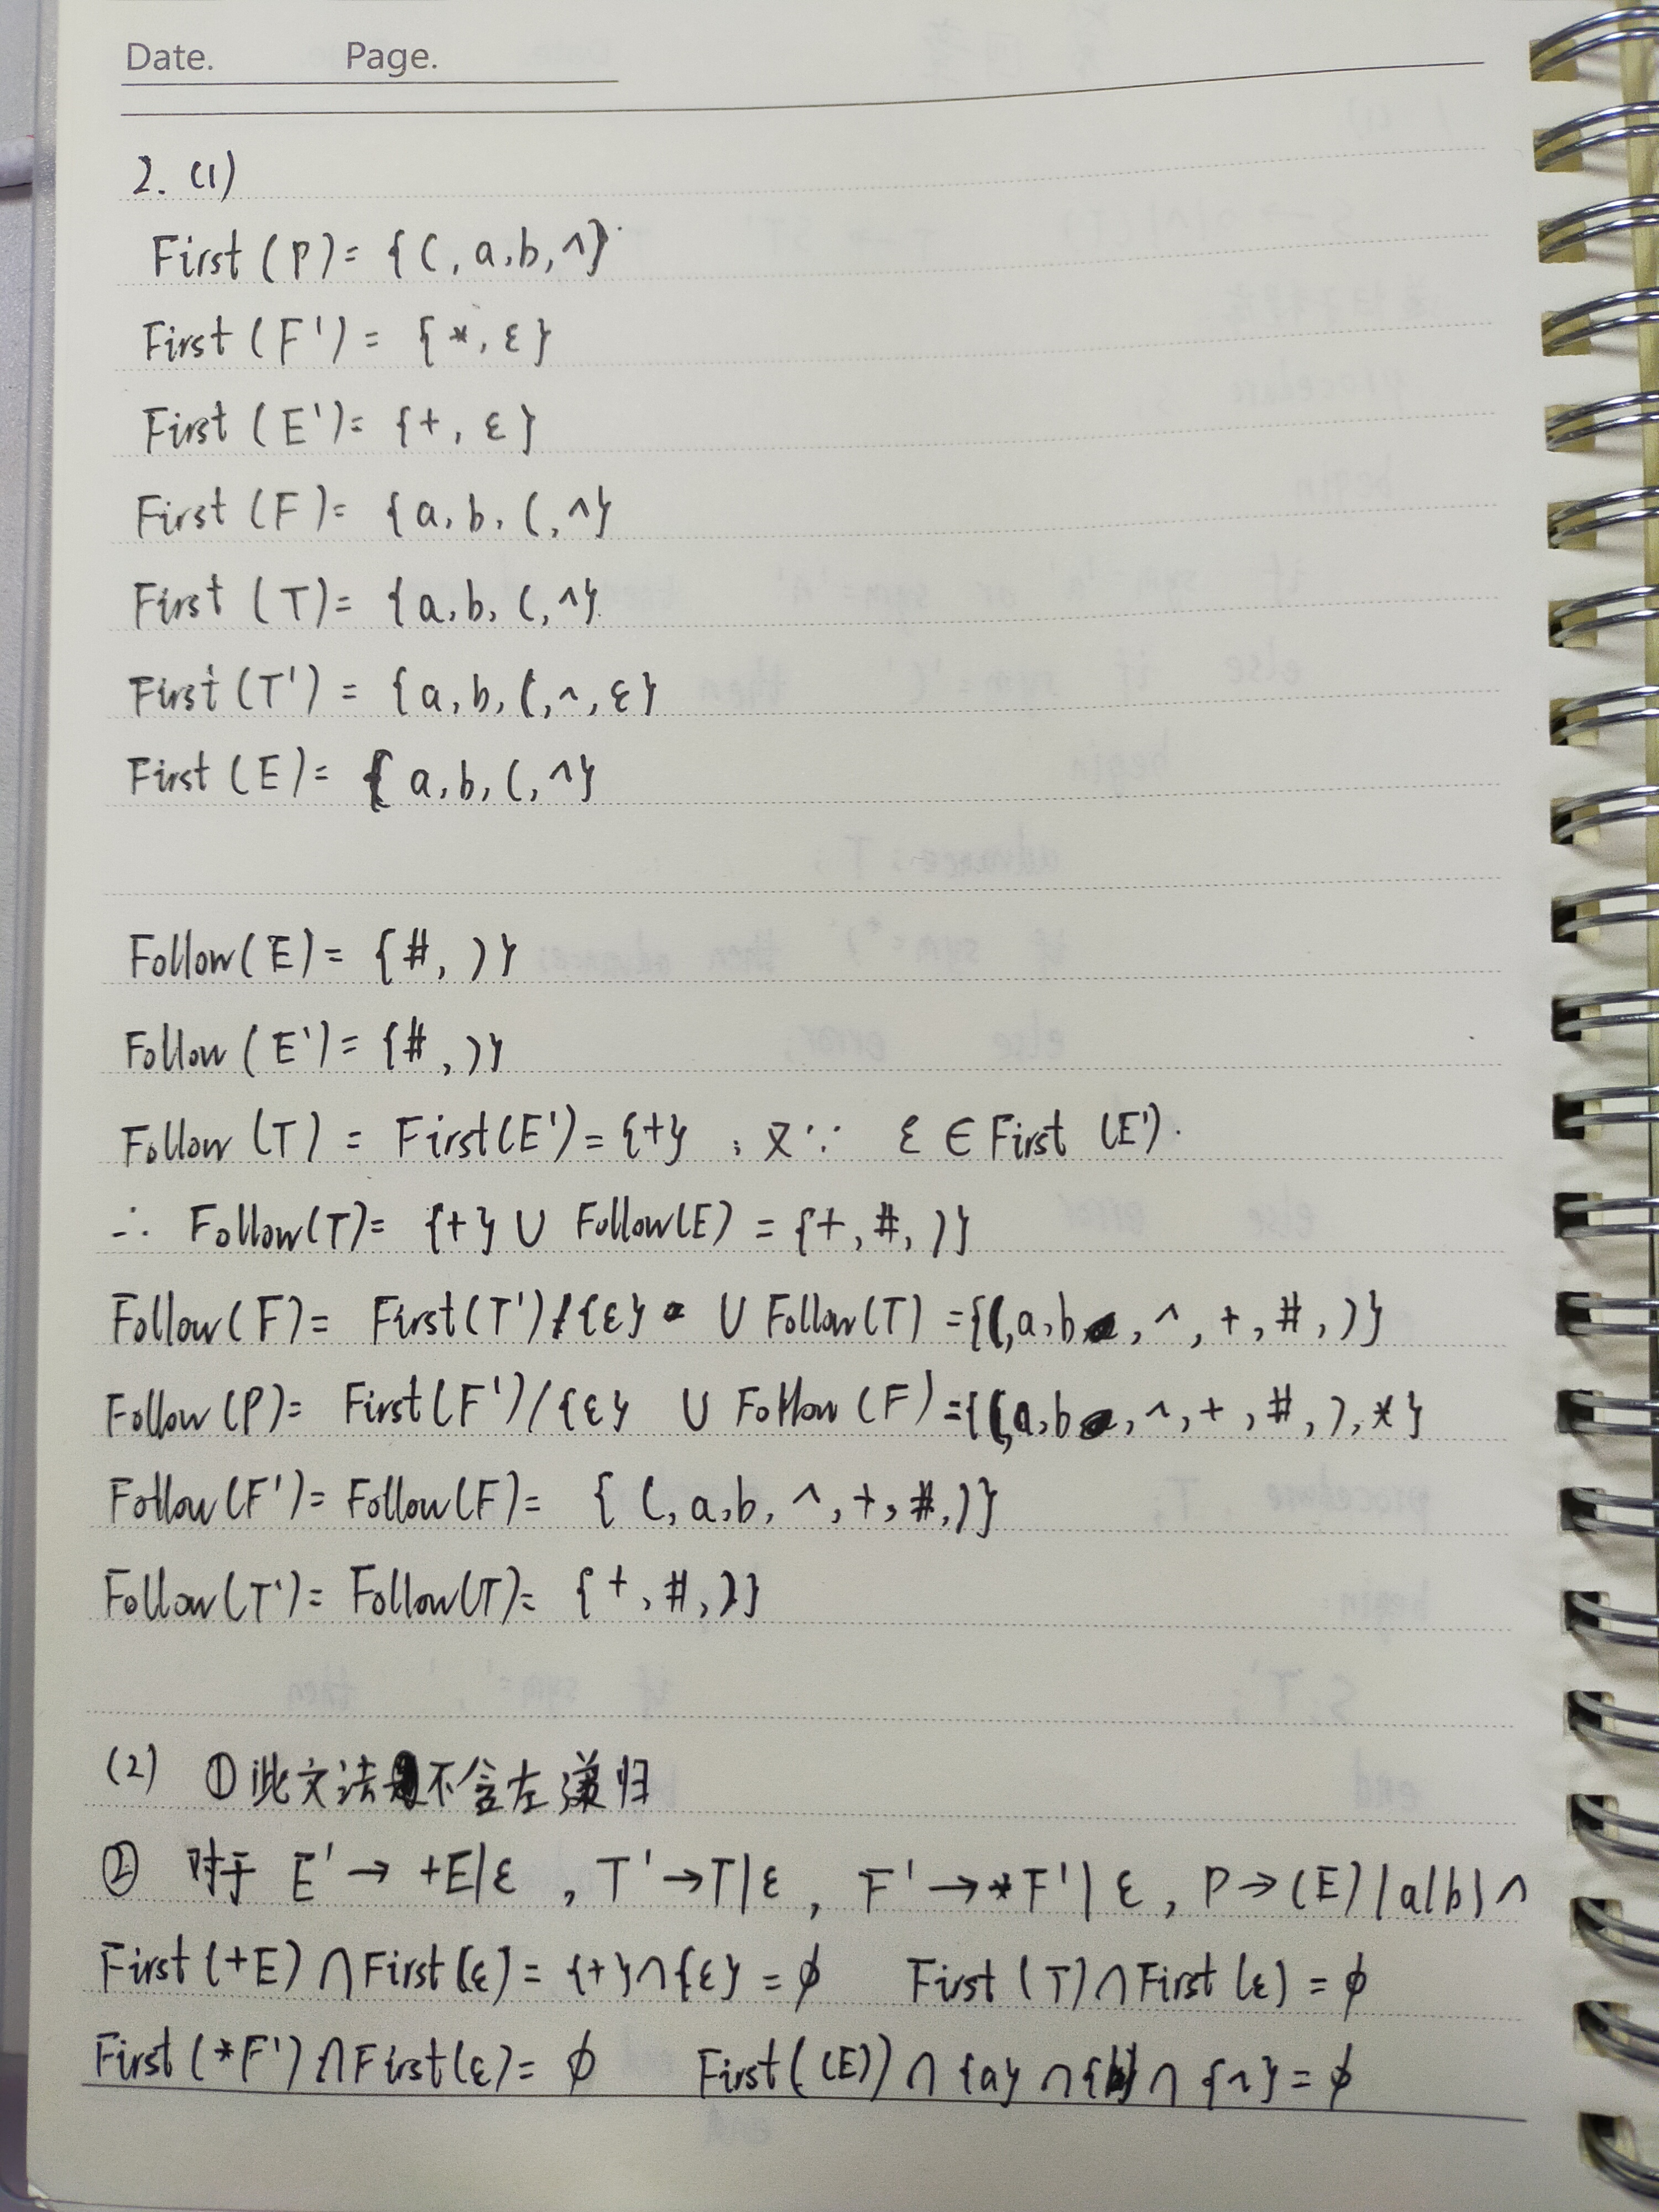 Date. Page.
2. (1)
First (P) = { (, a, b, ^ }
First (F') = { *, ε }
First (E') = { +, ε }
First (F) = { a, b, (, ^ }
First (T) = { a, b, (, ^ }
First (T') = { a, b, (, ^, ε }
First (E) = { a, b, (, ^ }
Follow (E) = { #, ) }
Follow (E') = { #, ) }
Follow (T) = First(E') = {+} , 又∵ ε ∈ First (E').
∴ Follow(T) = {+} ∪ Follow(E) = {+, #, )}
Follow(F) = First(T')/{ε} ∪ Follow(T) = {(, a, b, ^, +, #, )}
Follow(P) = First(F')/{ε} ∪ Follow(F) = {(, a, b, ^, +, #, ), *}
Follow(F') = Follow(F) = { (, a, b, ^, +, #, )}
Follow(T') = Follow(T) = { +, #, )}
(2) ①此文法不含左递归
② 对于 E' → +E|ε , T' → T|ε , F' → *F'|ε , P → (E)|a|b|^
First(+E) ∩ First(ε) = {+} ∩ {ε} = ϕ First(T) ∩ First(ε) = ϕ
First(*F') ∩ First(ε) = ϕ First((E)) ∩ {a} ∩ {b} ∩ {^} = ϕ